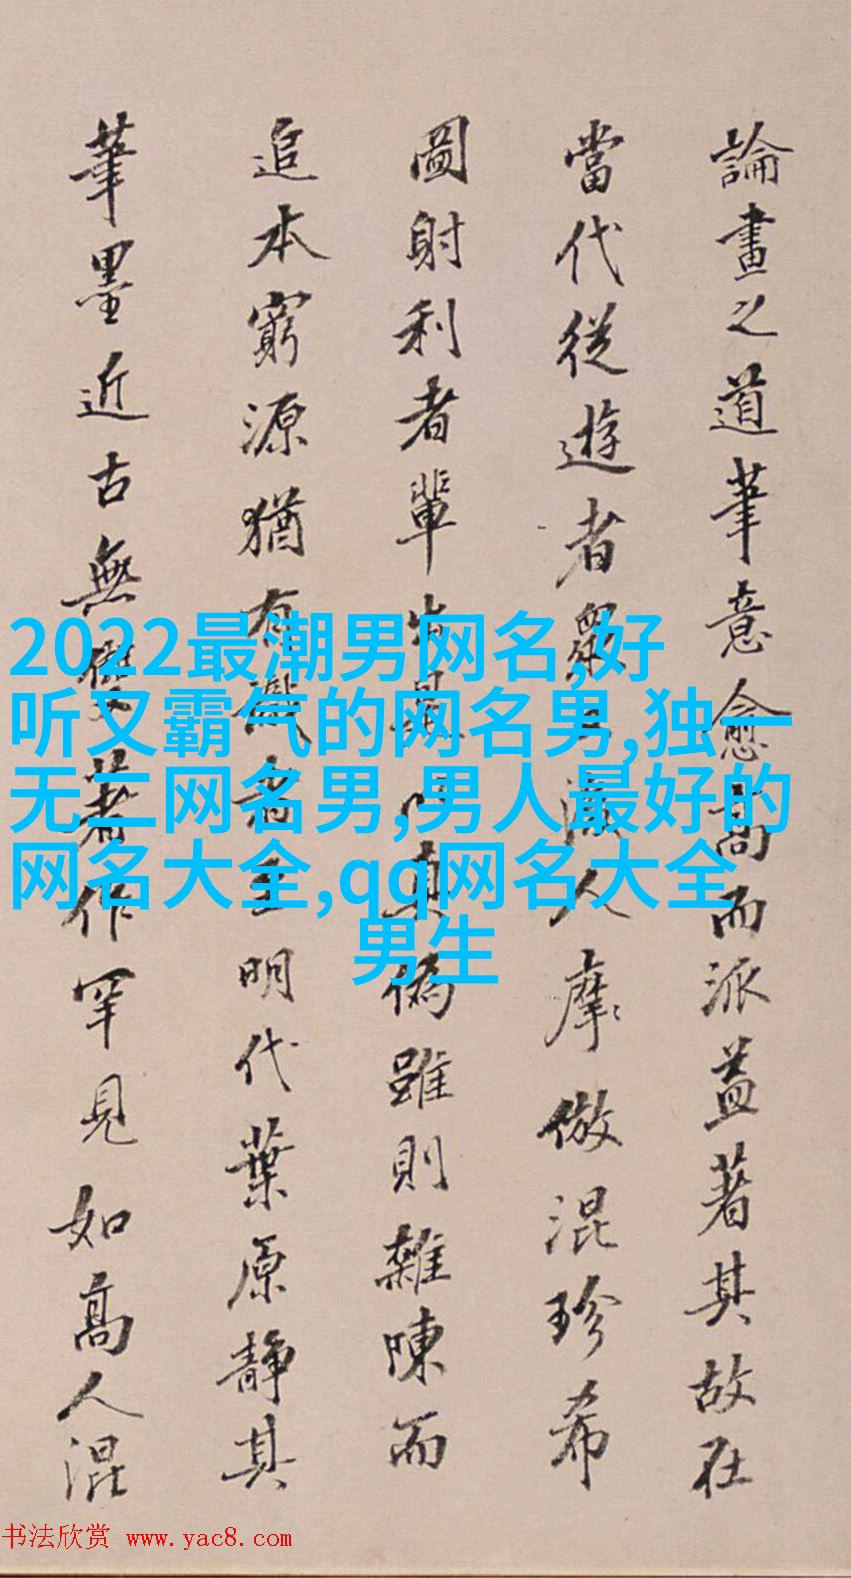 論畫之道筆意愈高而派益著其故在
當代從遊者眾人摩倣混珍希
圖射利者輩出真偽雖則雜陳而
追本窮源猶有識者明代葉原靜其
筆墨近古無雙著作罕見如高人混
2022最潮男网名,好
听又霸气的网名男,独一
无二网名男,男人最好的
网名大全,qq网名大全
男生
书法欣赏 www.yac8.com